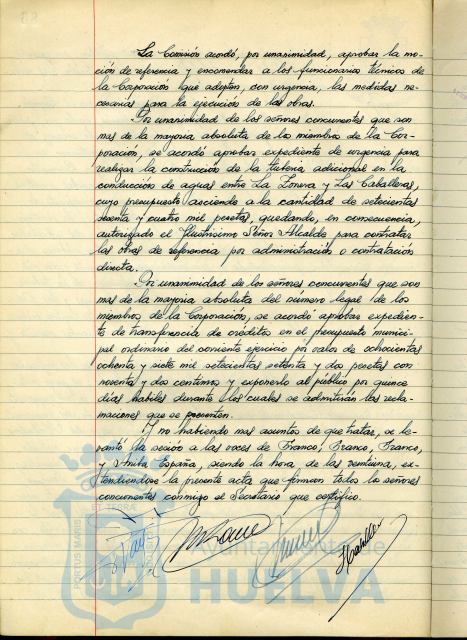 La Comisión acordó, por unanimidad, aprobar la mo-
ción de referencia y encomendar a los funcionarios técnicos de
la Corporación que adopten, con urgencia, las medidas ne-
cesarias para la ejecución de las obras.
Por unanimidad de los señores concurrentes que son
mas de la mayoria absoluta de los miembros de la Cor-
poración, se acordó aprobar expediente de urgencia para
realizar la construcción de la tuberia adicional en la
conducción de aguas entre La y Las Caballeras,
cuyo presupuesto asciende a la cantidad de setecientas
y cuatro mil pesetas, quedando, en consecuencia,
autorizado el Ilustrisimo Señor Alcalde para contratar
las obras de referencia por administración o contratación
directa.
Por unanimidad de los señores concurrentes que son
mas de la mayoria absoluta del número legal de los
miembros de la Corporación, se acordó aprobar expedien-
te de transferencia de créditos en el presupuesto munici-
pal ordinario del corriente ejercicio por valor de ochocientas
ochenta y siete mil setecientas setenta y dos pesetas con
noventa y dos centimos y exponerlo al público por quince
dias habiles durante los cuales se admitirán las recla-
maciones que se presenten.
Y no habiendo mas asuntos de que tratar, se le-
vantó la sesión a las voces de Franco, Franco, Franco,
y Arriba España, siendo la hora de las veintiuna, ex-
tendiendose la presente acta que firman todos los señores
concurrentes conmigo el Secretario que certifico.
Ayuntamiento de
HUELVA
PORTUS MARIS